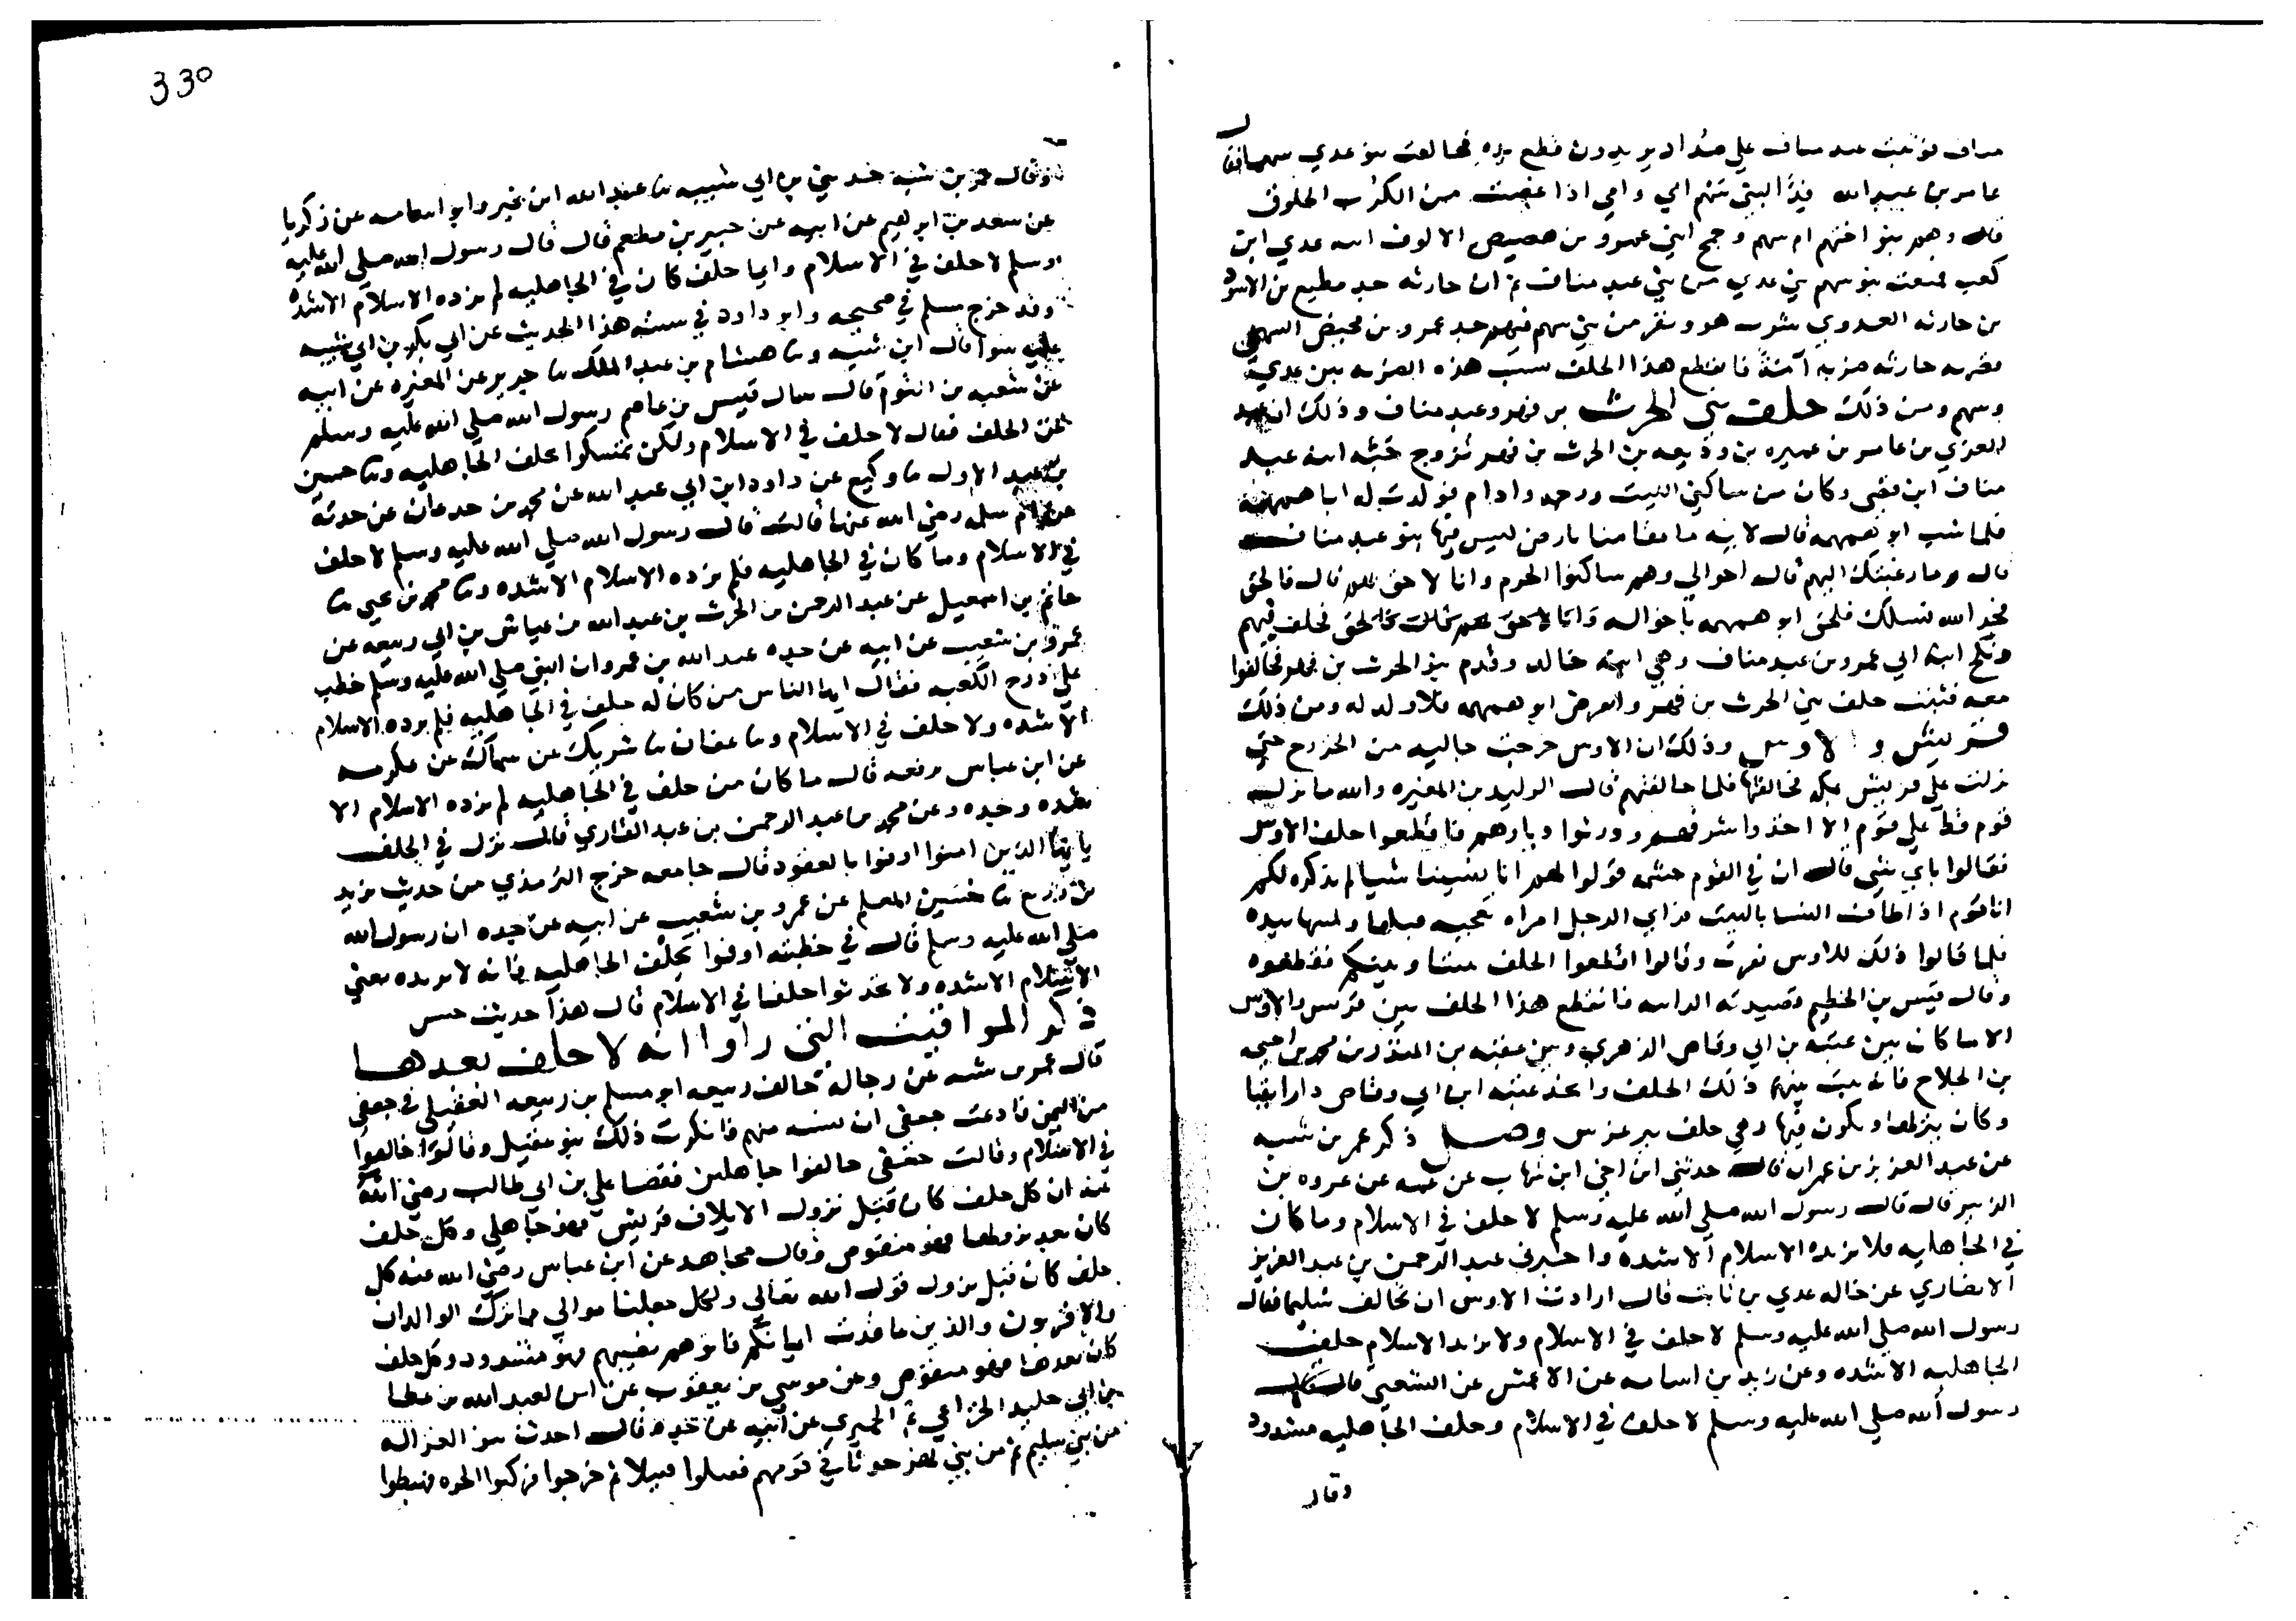 مناف فوثبت عبد مناف علي صداد يريدون قطع يده فحالفت بنو عدي سهما فقال
عامر بن عبد الله فِدًا لبني سهم امي وامي اذا غصت من الكرب الحلوق
قال وهم بنو اختهم ام سهم وجمح ابني عمرو بن هصيص الالوف ابنة عدي ابن
كعب فمنعت بنو سهم بني عدي من بني عبد مناف ثم ان حارثه جد مطيع بن الاسود
بن حارثه العدوي شرب هو ونفر من بني سهم فيهم جد عمرو بن محيض السهمي
فضربه حارثه ضربه آمّةً فانقطع هذا الحلف بسبب هذه الضربه بين عدي
وسهم ومن ذلك حلف بني الحرث بن فهر وعبد مناف وذلك ان عبد
العزي بن عامر بن عميره بن وديعه بن الحرث بن فهر تزوج حَيّه ابنه عبد
مناف ابن قصي وكان من ساكني الليت ورحه وادام فولدت له ابا همهمة
فلما شب ابو همهمه قال لابيه ما مقامنا بارض ليس فيها بنو عبد مناف
قال وما رغبتك اليهم قال اخوالي وهم ساكنوا الحرم وانا لاحق بهم قال فالحق
فخر الله نسلك فلحق ابو همهمه باخواله وانا لاحق بهم قال فالحق فحلف فيهم
ونكح ابنه ابي عمرو بن عبد مناف وهي ابنة خاله وقدم بنو الحرث بن فهر فحالفوا
معه فثبت حلف بني الحرث بن فهر وانقرض ابو همهمه فلا ولد له ومن ذلك
قريش والاوس وذلك ان الاوس خرجت جاليه من الخزرج حتي
نزلت علي قريش بمكه فحالفتها فلما حالفتهم قال الوليد بن المغيره والله ما نزل
قوم قط علي قوم الا اخذوا شرفهم وورثوا ديارهم فاقطعوا حلف الاوس
فقالوا باي شي قال ان في القوم حشمه قولوا لهم انا نسينا شيا لم نذكره لكم
انا قوم اذا طافت النسا بالبيت فراي الرجل امراه تعجبه قبلها ولمسها بيده
فلما قالوا ذلك للاوس نفرت وقالوا اقطعوا الحلف بيننا وبينكم فقطعوه
وقال قيس بن الخطيم قصيدته الراسه فانقطع هذا الحلف بين قريش والاوس
الا ما كان بين عتبه بن ابي وقاص الزهري وبين عقبه بن المنذر بن محمد بن احيحه
بن الجلاح فانه ثبت بينهما ذلك الحلف واتخذ عتبه ابن ابي وقاص دارا بقبا
وكان ينزلها ويكون فيها وهي حلف بير غرس وصل ذكر عمر بن شبه
عن عبد العزيز بن عمران قال حدثني ابن اخي ابن شهاب عن عمه عن عروه بن
الزبير قال قال رسول الله صلي الله عليه وسلم لا حلف في الاسلام وما كان
في الجاهليه فلا يزيده الاسلام الا شده واخبرني عبد الرحمن بن عبد العزيز
الانصاري عن خاله عدي بن ثابت قال ارادت الاوس ان تحالف سليما فقال
رسول الله صلي الله عليه وسلم لا حلف في الاسلام ولا يزيد الاسلام حلف
الجاهليه الا شده وعن زيد بن اسامه عن الاعمش عن الشعبي قال قال
رسول الله صلي الله عليه وسلم لا حلف في الاسلام وحلف الجاهليه مشدود
وقال
330
وقال عمر بن شبه حدثني بن ابي شيبه ثنا عبد الله ابن نمير وابو اسامه عن زكريا
عن سعد بن ابرهيم عن ابيه عن جبير بن مطعم قال قال رسول الله صلي الله عليه
وسلم لا حلف في الاسلام وايما حلف كان في الجاهليه لم يزده الاسلام الا شده
وقد خرج مسلم في صحيحه وابو داود في سننه هذا الحديث عن ابي بكر بن ابي شيبه
سوا قال ابن شبه وثنا هشام بن عبد الملك ثنا جرير عن المغيره عن ابيه
عن شعبه بن التوم قال سال قيس بن عاصم رسول الله صلي الله عليه وسلم
عن الحلف فقال لا حلف في الاسلام ولكن تمسكوا بحلف الجاهليه وثنا حسين
بن عبد الاول ثنا وكيع عن داود ابن ابي عبد الله عن محمد بن جدعان عن جدته
عن ام سلمه رضي الله عنها قالت قال رسول الله صلي الله عليه وسلم لا حلف
في الاسلام وما كان في الجاهليه فلم يزده الاسلام الا شده وثنا محمد بن يحيي ثنا
حاتم بن اسمعيل عن عبد الرحمن بن الحرث بن عبد الله بن عياش بن ابي ربيعه عن
عمرو بن شعيب عن ابيه عن جده عبد الله بن عمرو ان النبي صلي الله عليه وسلم خطب
علي درج الكعبه فقال ايها الناس من كان له حلف في الجاهليه فلم يزده الاسلام
الا شده ولا حلف في الاسلام وثنا عفان ثنا شريك عن سماك عن عكرمه
عن ابن عباس رفعه قال ما كان من حلف في الجاهليه لم يزده الاسلام الا
شده وحده وعن محمد بن عبد الرحمن بن عبد القاري قال نزل في الحلف
يا ايها الذين امنوا اوفوا بالعقود قال جامعه خرج الترمذي من حديث يزيد
بن زريع ثنا حسين المعلم عن عمرو بن شعيب عن ابيه عن جده ان رسول الله
صلي الله عليه وسلم قال في خطبته اوفوا بحلف الجاهليه فانه لا يزيده يعني
الاسلام الا شده ولا تحدثوا حلفا في الاسلام قال هذا حديث حسن
ذكر المواقيت التي راوا انه لا حلف بعدها
قال عمر بن شبه عن رجاله تحالف ربيعه ابو مسلم بن ربيعه العقيلي في جعفي
من اليمن فادعت جعفي ان نسبه منهم فانكرت ذلك بنو عقيل وقالوا حالفوا
في الاسلام وقالت جعفي حالفوا جاهلين فقضا علي بن ابي طالب رضي الله
عنه ان كل حلف كان قبل نزول الايلاف قريش فهو جاهلي وكل حلف
كان بعد نزولها فهو منقوص وقال مجاهد عن ابن عباس رضي الله عنه كل
حلف كان قبل نزول قول الله تعالي ولكل جعلنا موالي مما ترك الوالدان
والاقربون والذين عاقدت ايمانكم فاتوهم نصيبهم فهو مشدود وكل حلف
كان بعدها فهو منقوص وعن موسي بن يعقوب عن لعبد الله بن عطا
بن ابي حليد الخزاعي ثم الحميري عن ابيه عن جده قال احدث بنو الغزاله
من بني سليم ثم من بني لمضر حدثا في قومهم فقتلوا قتيلا ثم خرجوا فركبوا الحره فهبطوا